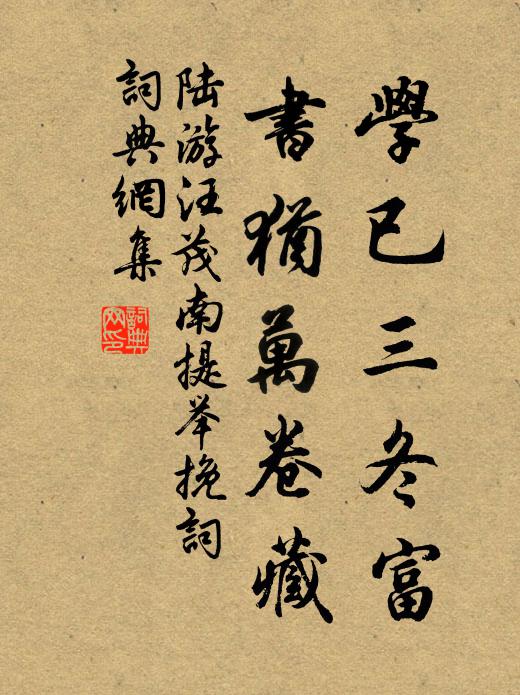 學已三冬富
書猶萬卷藏
陆游汪茂南提举挽詞
詞典網集
詞典网印